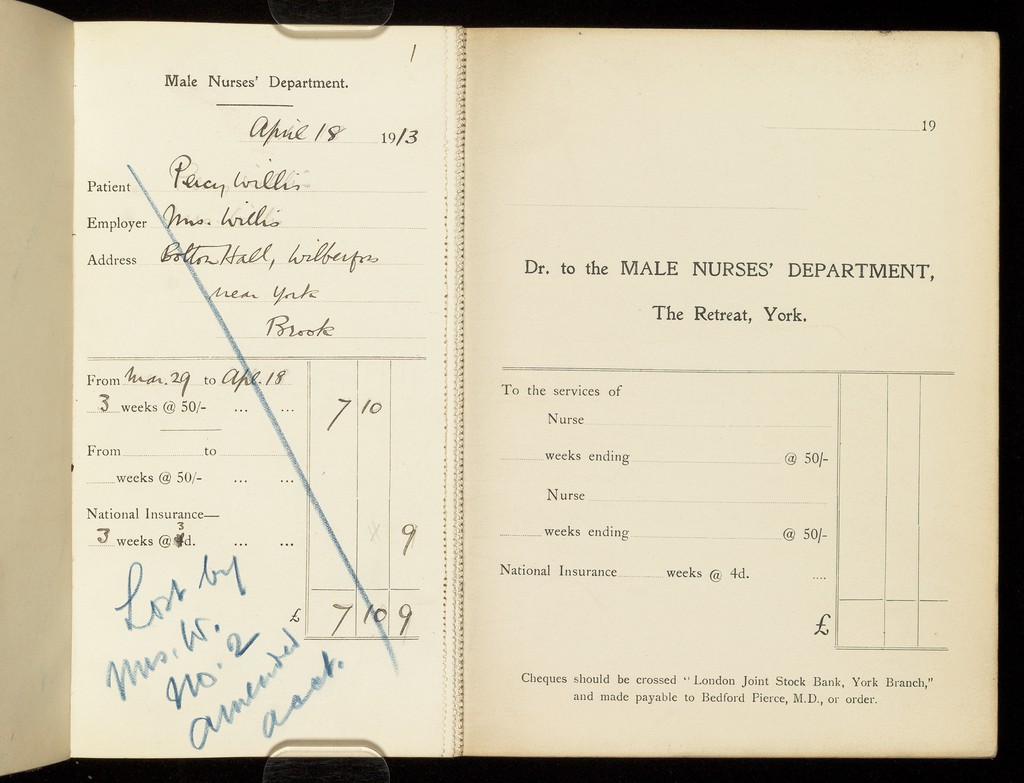 1
Male Nurses' Department.
April 18 1913
Patient Percy Willis
Employer Mrs. Willis
Address Bolton Hall, Wilberfoss
near York
Brook
From Mar. 29 to Apl. 18
3 weeks @ 50/- ... ... 7 10
From to
weeks @ 50/- ... ...
National Insurance—
3
3 weeks @ 4d. ... ... 9
£ 7 10 9
Lost by
Mrs. W.
No. 2
amended
acct.
19
Dr. to the MALE NURSES' DEPARTMENT,
The Retreat, York.
To the services of
Nurse
weeks ending @ 50/-
Nurse
weeks ending @ 50/-
National Insurance weeks @ 4d. ....
£
Cheques should be crossed "London Joint Stock Bank, York Branch,"
and made payable to Bedford Pierce, M.D., or order.